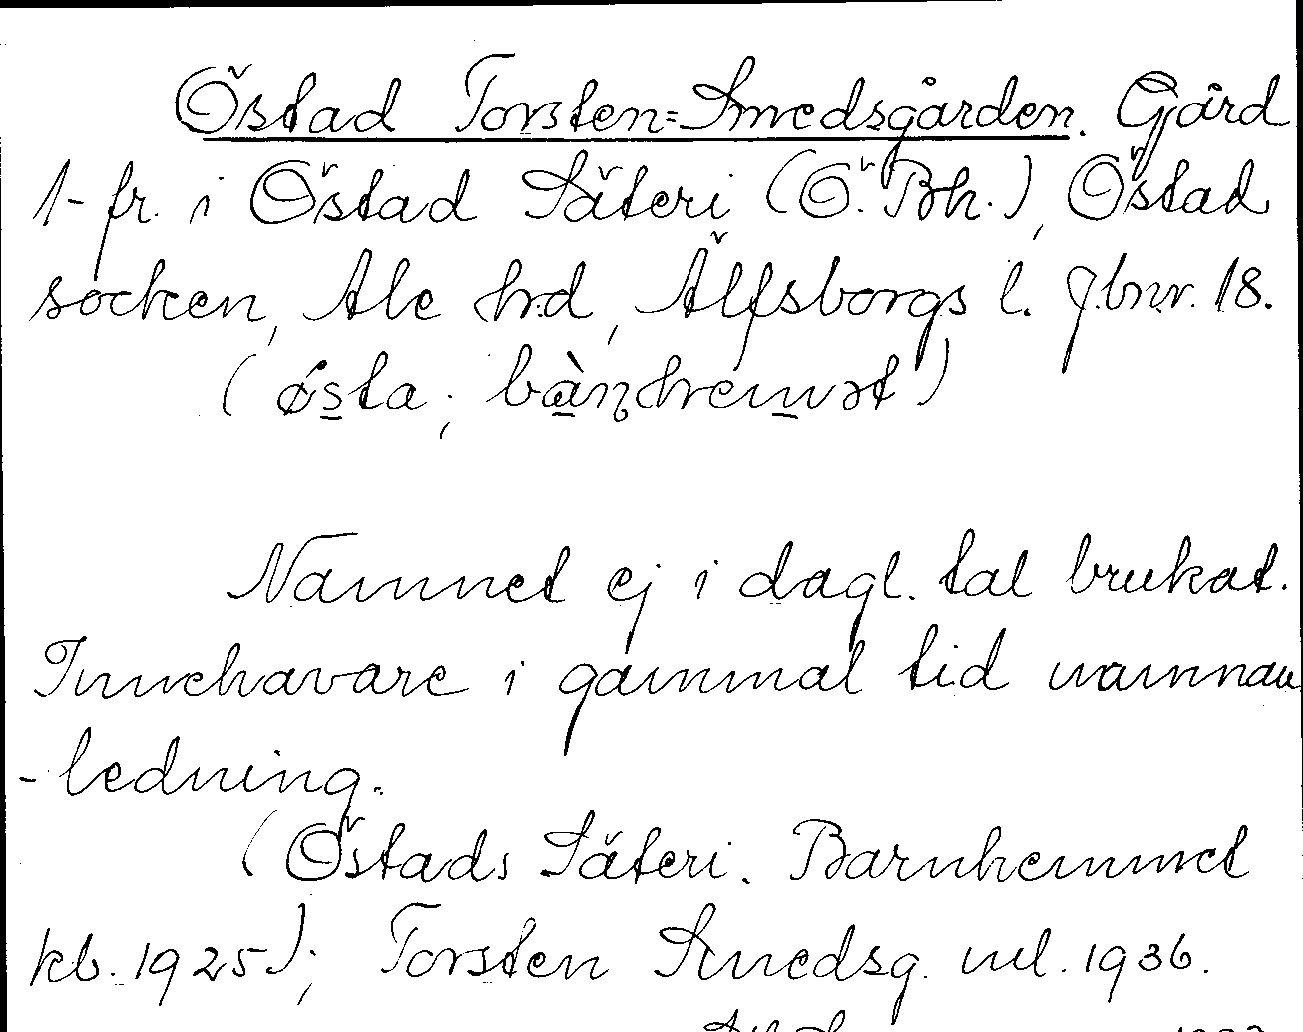 Östad Torsten=Smedsgården. Gård
1- fr. i Östad Säteri (Ö. Bh.), Östad
socken, Ale hrd, Älfsborgs l. J.bnr. 18.
(østa; bàɳhemət)
Namnet ej i dagl. tal brukat.
Innehavare i gammal tid namnan
-ledning.
(Östads Säteri. Barnhemmet
kb. 1925); Torsten Smedsg. ml. 1936.